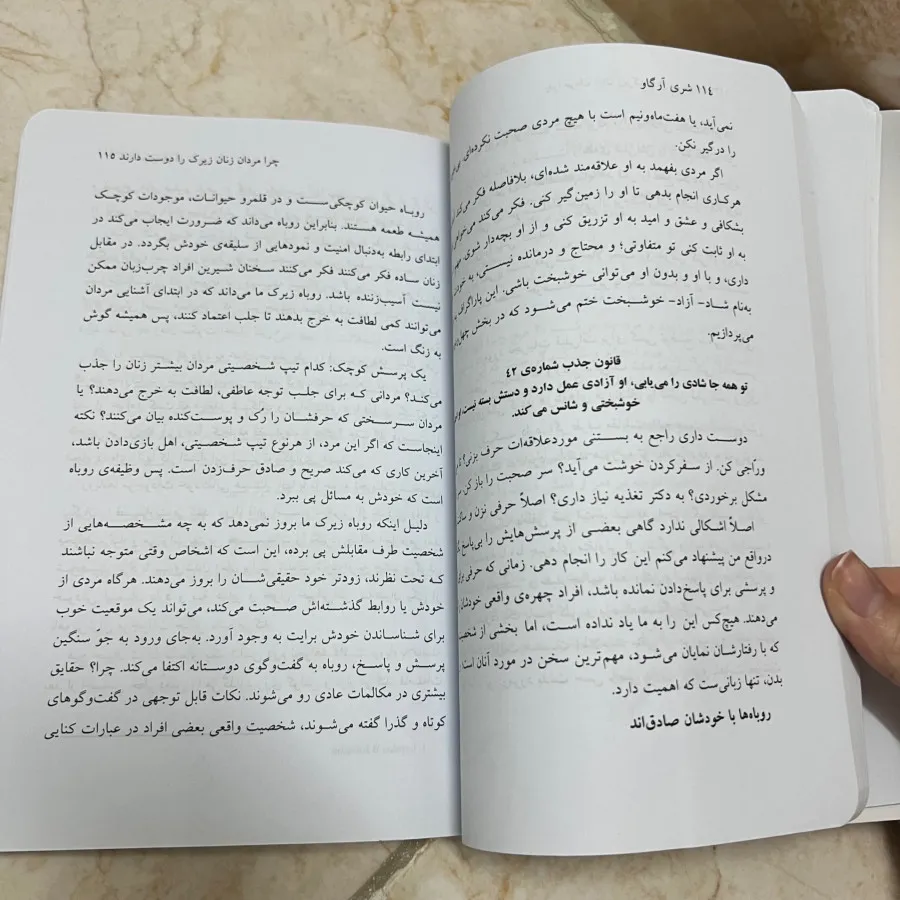 ۱۱۴ شری آرگاو
نمی‌آید، یا هفت‌ماه‌ونیم است با هیچ مردی صحبت نکرده‌ای،
را درگیر نکن.
اگر مردی بفهمد به او علاقه‌مند شده‌ای، بلافاصله فکر می‌کند
هرکاری انجام بدهی تا او را زمین‌گیر کنی. فکر می‌کند
بشکافی و عشق و امید به او تزریق کنی و از او بچه‌دار شوی.
به او ثابت کنی تو متفاوتی؛ و محتاج و درمانده نیستی،
داری، و با او و بدون او می‌توانی خوشبخت باشی. این پاراگراف
به‌نام شاد- آزاد- خوشبخت ختم می‌شود که در بخش
می‌پردازیم.
قانون جذب شماره‌ی ۴۲
تو همه جا شادی را می‌یابی، او آزادی عمل دارد و دستش بسته نیست
خوشبختی و شانس می‌کند.
دوست داری راجع به بستنی موردعلاقه‌ات حرف بزنی؟
ورّاجی کن. از سفرکردن خوشت می‌آید؟ سر صحبت را باز کن.
مشکل برخوردی؟ به دکتر تغذیه نیاز داری؟ اصلاً حرفی نزن و
اصلاً اشکالی ندارد گاهی بعضی از پرسش‌هایش را بی‌پاسخ
درواقع من پیشنهاد می‌کنم این کار را انجام دهی. زمانی که حرفی
و پرسشی برای پاسخ‌دادن نمانده باشد، افراد چهره‌ی واقعی خودشان
می‌دهند. هیچ‌کس این را به ما یاد نداده است، اما بخشی از
که با رفتارشان نمایان می‌شود، مهم‌ترین سخن در مورد آنان است
بدن، تنها زبانی‌ست که اهمیت دارد.
روباه‌ها با خودشان صادق‌اند
چرا مردان زنان زیرک را دوست دارند ۱۱۵
روباه حیوان کوچکی‌ست و در قلمرو حیوانات، موجودات کوچک
همیشه طعمه هستند. بنابراین روباه می‌داند که ضرورت ایجاب می‌کند در
ابتدای رابطه به‌دنبال امنیت و نمودهایی از سلیقه‌ی خودش بگردد. در مقابل
زنان ساده فکر می‌کنند فکر می‌کنند سخنان شیرین افراد چرب‌زبان ممکن
نیست آسیب‌زننده باشد. روباه زیرک ما می‌داند که در ابتدای آشنایی مردان
می‌توانند کمی لطافت به خرج بدهند تا جلب اعتماد کنند، پس همیشه گوش
به زنگ است.
یک پرسش کوچک: کدام تیپ شخصیتی مردان بیشتر زنان را جذب
می‌کند؟ مردانی که برای جلب توجه عاطفی، لطافت به خرج می‌دهند؟ یا
مردان سرسختی که حرفشان را رُک و پوست‌کنده بیان می‌کنند؟ نکته
اینجاست که اگر این مرد، از هرنوع تیپ شخصیتی، اهل بازی‌دادن باشد،
آخرین کاری که می‌کند صریح و صادق حرف‌زدن است. پس وظیفه‌ی روباه
است که خودش به مسائل پی ببرد.
دلیل اینکه روباه زیرک ما بروز نمی‌دهد که به چه مشخصه‌هایی از
شخصیت طرف مقابلش پی برده، این است که اشخاص وقتی متوجه نباشند
که تحت نظرند، زودتر خود حقیقی‌شان را بروز می‌دهند. هرگاه مردی از
خودش یا روابط گذشته‌اش صحبت می‌کند، می‌تواند یک موقعیت خوب
برای شناساندن خودش برایت به وجود آورد. به‌جای ورود به جوّ سنگین
پرسش و پاسخ، روباه به گفت‌وگوی دوستانه اکتفا می‌کند. چرا؟ حقایق
بیشتری در مکالمات عادی رو می‌شوند. نکات قابل توجهی در گفت‌وگوهای
کوتاه و گذرا گفته می‌شوند، شخصیت واقعی بعضی افراد در عبارات کنایی